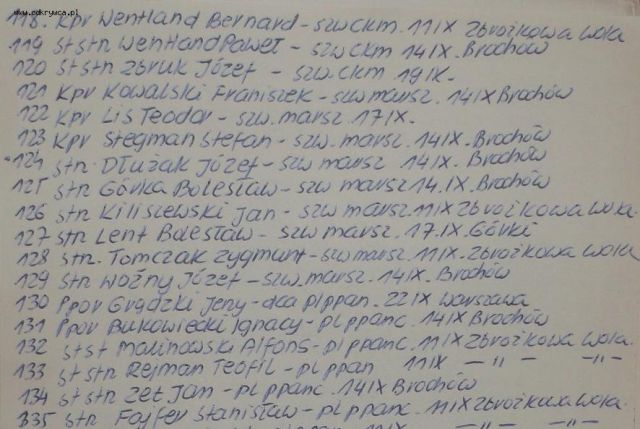 www.odkrywca.pl
118. Kpr Wentland Bernard - szw ckm. 11 IX Zbrożkowa Wola
119 st str Wentland Paweł - szw ckm 14 IX. Brochów
120 st str Zbruk Józef - szw. ckm 19 IX.
121 Kpr Kowalski Franiszek - szw marsz. 14 IX Brochów
122 Kpr Lis Teodor - szw. marsz. 17 IX.
123 Kpr Stegman Stefan - szw. marsz. 14 IX. Brochów
124 str. Dłużak Józef - szw marsz 14 IX. Brochów
125 str Górka Bolesław - szw marsz 14. IX. Brochów
126 str Kiliszewski Jan - szw marsz. 11 IX Zbrożkowa Wola.
127 str Lent Bolesław - szw marsz. 17. IX. Górki
128 str. Tomczak Zygmunt - szw marsz. 11 IX. Zbrożkowa Wola
129 str Woźny Józef - szw. marsz. 14 IX. Brochów
130 Ppor Grądzki Jerzy - dca pl ppan. 22 IX Warszawa
131 Ppor Bukowiecki Ignacy - pl ppanc. 14 IX Brochów
132 st st Malinowski Alfons - pl ppanc. 11 IX Zbrożkowa Wola.
133 st str Rejman Teofil - pl ppan 11 IX -"- -"-
134 st str Zet Jan - pl ppanc. 14 IX Brochów
335 str Fojfer Stanisław - pl ppanc. 11 IX Zbrożkowa Wola.